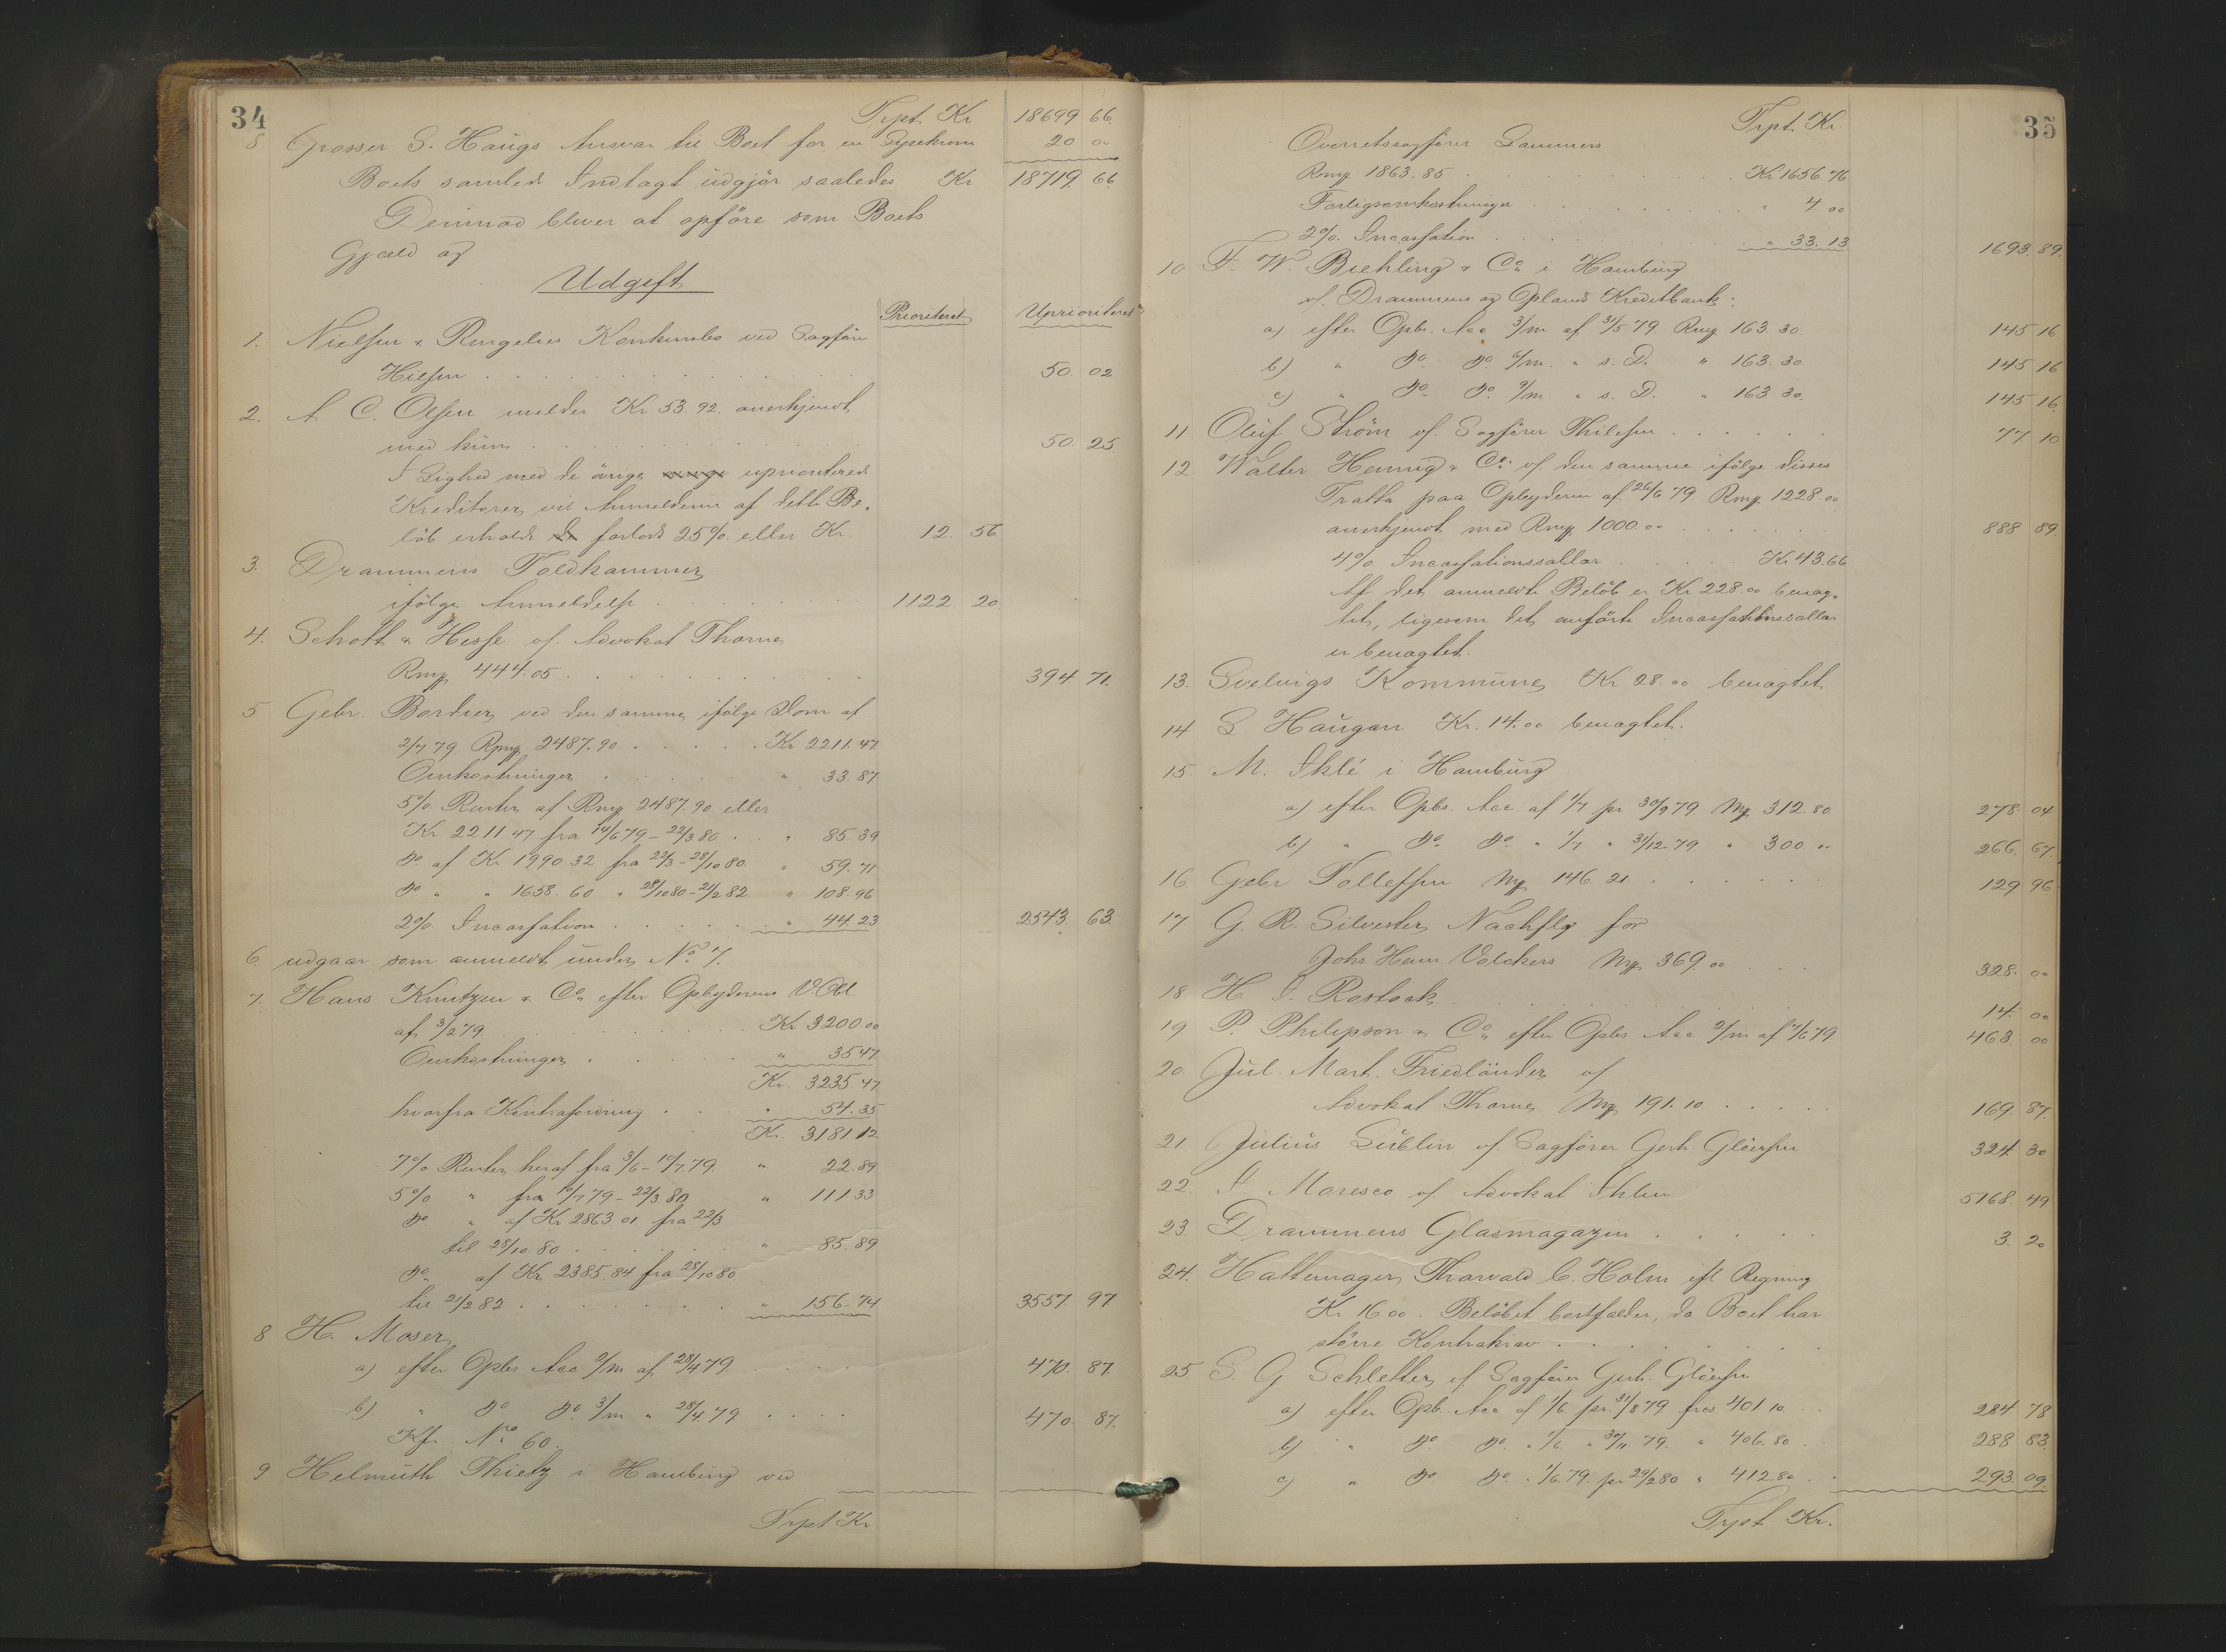 34
Trpt. Kr 18699 66.
8 Grosser S. Haugs Ansvar til Boet for en 20 00
Boets samlede Indtægt udgjör saaledes Kr 18719. 66.
Derimod bliver at opföre som Boets
Gjæld og
Udgift
Prioriteret Uprioriteret
1. Nielsen & Konkursbo ved Sagförer
Hielsen . . . 50. 02
2. A. C. Olsen melder Kr 53.92. anerkjendt
med kun . . . 50. 25
I Lighed med de övrige uprioriterede
Kreditorer vil Anmelderen af dette Be-
löb erholde forlods 25% eller Kr. 12. 56
3. Drammens Toldkammer
ifölge Anmeldelse . . . 1122. 20.
4. Schott & Hesse v/ Advokat Thorne
Rmp 444.05 . . . 394. 71.
5 Gebr. Bordier ved den samme ifölge Dom af
2/7 79. Rmp. 2487.90 . . . Kr 2211.47
Omkostninger . . . " 33.87
5% Renter af Rmp 2487.90 eller
Kr 2211 47 fra 14/6 79 - 22/3 80 . . " 85 39
Do af Kr 1990 32 fra 22/3 - 28/10 80 " 59.71
Do " " 1658.60 " 28/10 80 - 21/2 82 " 108.96
2% Incassation . . . " 44.23 2543. 63.
6. udgaar som anmeldt under No 7.
7. Hans Knutzen & Co. efter Opbyderens VObl.
af 3/2 79 . . . Kr 3200.00
Omkostninger . . . " 35 47
Kr. 3235 47
hvorfra Kontrafordring . . . " 54.35
Kr. 3181.12
7% Renter heraf fra 3/6 - 10/7 79. " 22.89
5% " fra 10/7 79 - 22/3 80 " 111.33
Do. " af Kr 2863 01 fra 22/3
til 28/10 80 . . . " 85.89
Do. af Kr 2385.84 fra 28/10 80
til 21/2 82 . . . " 156.74 3557. 97
8 H. Moser
a) efter Opbs Acc 9/m af 28/4 79 . . . 470. 87.
b) " Do Do. 3/m " 28/4 79 . . . 470. 87.
Kfr. No 60.
9 Helmuth Thietz i Hamburg ved
Trpt Kr
35
Trpt. Kr.
Overretssagförer Lammers
Rmp. 1863.85 . . . Kr 1656.76
Forligsomkostninger . . . " 4 00
2% Incassation . . . " 33.13 1693. 89.
10 F. W. Biehling & Co. i Hamburg
v/ Drammens og Oplands Kreditbank:
a) efter Opbs. Acc 3/m af 31/5 79 Rmp 163 30. 145 16
b) " Do Do. 6/m. " s. D. " 163.30. 145 16
c) " Do. Do. 9/m " s. D. " 163 30. 145 16.
11 Oluf Ström v/ Sagförer Thilesen . . . 77 10
12. Walter Hennig & Co. v/ den samme ifölge disses
Tratta paa Opbyderen af 26/6 79 Rmp. 1228.00
anerkjendt med Rmp. 1000 00 . . . 888 89
4% Incassationssallær . . . Kr 43.66
Af det anmeldte Belöb er Kr 228.00 benæg-
tet, ligesom det anförte Incassationssallær
er benægtet.
13. Svelvigs Kommune Kr 28.00 benægtet
14 S. Haugan Kr. 14.00 benægtet.
15. M. Iklé i Hamburg
a) efter Opbs. Acc af 1/7 pr 30/9 79 Mp 312.80. 278. 04
b) " Do. Do. " 1/7 " 31/12 79. " 300.00 266. 67.
16. Gebr Tollefsen Mp 146 21 . . . 129 96
17 G. R. Silvester Nachflg for
Johs. Herm. Volckers Mp 369.00 . . . 328. 00
18 H. I. Rostock . . . 14. 00
19. P. Philipson & Co. efter Opbs Acc 9/m af 7/6 79 463. 00
20. Jul. Mart. Friedländer v/
Advokat Thorne Mp 191.10 . . . 169. 87.
21 Julius Lublin v/ Sagförer Gerh. Glöersen 324 30
22. I. Moresco v/ Advokat Ihlen 5168. 49
23. Drammens Glasmagazin . . . 3. 20
24. Hattemager Thorvald C. Holm ifl Regning
Kr 16 00. Belöbet bortfalder, da Boet har
större Kontrakrav . . .
25. S. G. Schletter v/ Sagförer Gerh. Glöersen
a) efter Opb. Acc af 1/6 pr 31/8 79 frcs 401 10 . . 284 78
b) " Do. Do. " 1/6 " 30/11 79. " 406.80 . . 288 83.
c) " Do Do. " 1/6 79. pr 29/2 80 " 412.80 . . 293. 09.
Trpt. Kr.